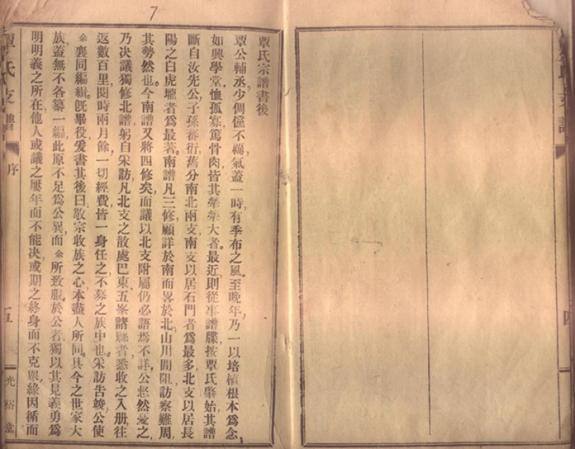 7
覃氏支譜
序
五
光裕堂
覃氏宗譜書後
覃公輔丞少倜儻不羈氣蓋一時有季布之風至晚年乃一以培植根本爲念
如興學堂恤孤寡篤骨肉皆其犖犖大者最近則從事譜牒按覃氏肇始其譜
斷自汝先公子孫蕃衍舊分南北兩支南支以居石門者爲最多北支以居長
陽之白虎壠者爲最著南譜凡三修顧詳於南而畧於北山川間阻訪察難周
其勢然也今南譜又將四修矣而議以北支附屬仍必語焉不詳公慾然憂之
乃決議獨修北譜躬自宋訪凡北支之散處巴東五峯諸縣者悉收之入册往
返數百里閱時兩月餘一切經費皆一身任之不募之族中也宋訪告竣公使
余襄同編輯旣畢役爰書其後曰敬宗收族之心本盡人所同具今之世家大
族蓋無不各纂一編此原不足爲公異而余所致服於公者獨以其見義勇爲
明明義之所在他人或議之屢年而不能决或期之終身而不克果緣因循而